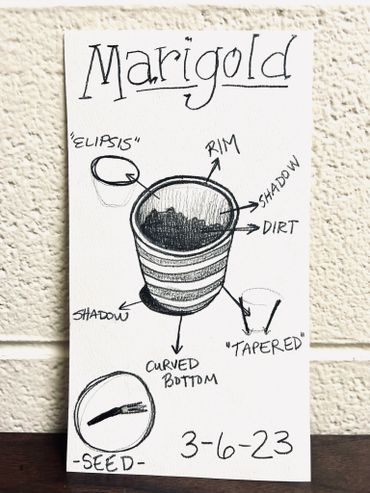 Marigold
"ELIPSIS"
RIM
SHADOW
DIRT
SHADOW
"TAPERED"
CURVED
BOTTOM
-SEED-
3-6-23